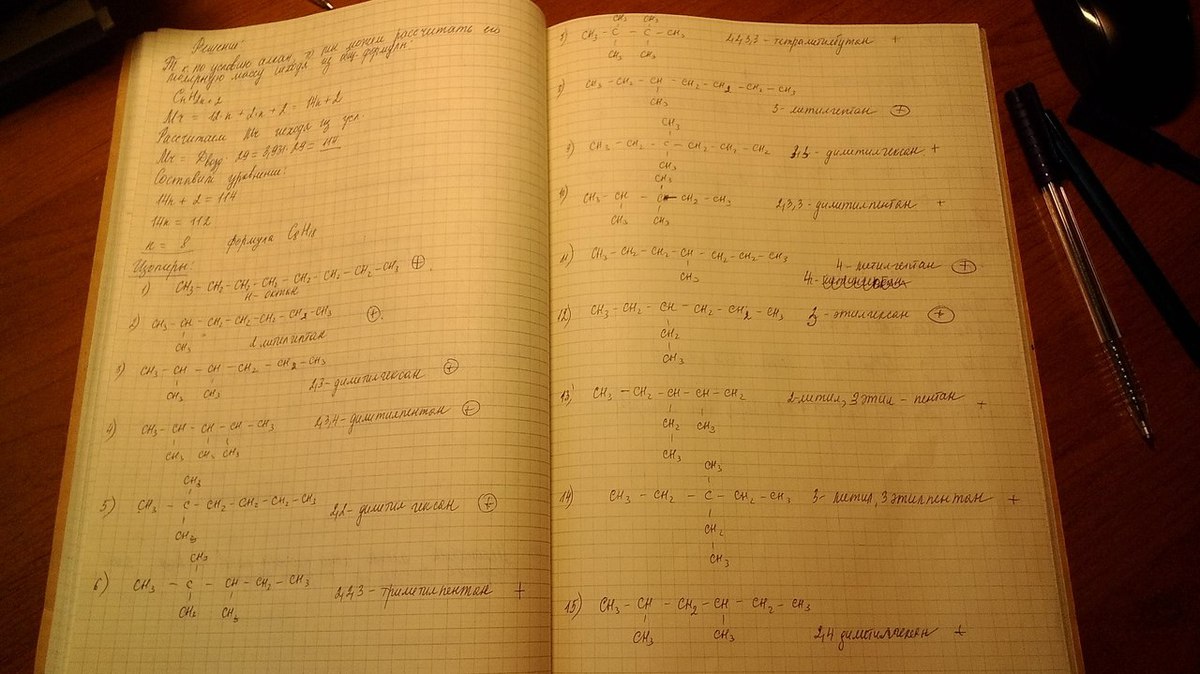 Решение:
Т.к. по условию алкан, то мы можем рассчитать его
молярную массу исходя из общ. формулы
CnH2n+2
Mr = 12·n + 2·n + 2 = 14n+2
Рассчитаем Mr исходя из усл.
Mr = Dвозд · 29 = 3,931·29 = 114
Составим уравнение:
14n + 2 = 114
14n = 112
n = 8 формула C8H18
Изомеры:
1) CH3 – CH2 – CH2 – CH2 – CH2 – CH2 – CH2 – CH3 +
н-октан
2) CH3 – CH – CH2 – CH2 – CH2 – CH2 – CH3 +
CH3 2 метилгептан
3) CH3 – CH – CH – CH2 – CH2 – CH3
CH3 CH3 2,3-диметилгексан +
4) CH3 – CH – CH – CH – CH3 2,3,4-диметилпентан +
CH3 CH3 CH3
CH3
5) CH3 – C – CH2 – CH2 – CH2 – CH3 2,2-диметил гексан +
CH3
CH3
6) CH3 – C – CH – CH2 – CH3 2,2,3-триметилпентан +
CH3 CH3
CH3 CH3
CH3 – C – C – CH3 2,2,3,3-тетраметилбутан +
CH3 CH3
8) CH3 – CH2 – CH – CH2 – CH2 – CH2 – CH3
CH3 3-метилгептан +
CH3
9) CH3 – CH2 – C – CH2 – CH2 – CH2 3,3-диметилгексан +
CH3
CH3
10) CH3 – CH – C – CH2 – CH3 2,3,3-диметилпентан +
CH3 CH3
11) CH3 – CH2 – CH2 – CH – CH2 – CH2 – CH3
CH3 4-метилгептан +
4-
12) CH3 – CH2 – CH – CH2 – CH2 – CH3 3-этилгексан +
CH2
CH3
13) CH3 – CH2 – CH – CH – CH2 2-метил, 3этил-пентан +
CH2 CH3
CH3
CH3
14) CH3 – CH2 – C – CH2 – CH3 3-метил, 3этилпентан +
CH2
CH3
15) CH3 – CH – CH2 – CH – CH2 – CH3
CH3 CH3 2,4 диметилгексан +